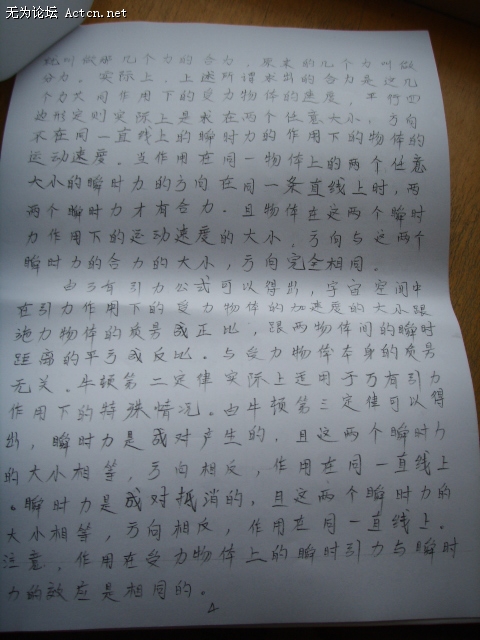 无为论坛 Actcn.net
就叫做那几个力的合力，原来的几个力叫做
分力。实际上，上述所谓求出的合力是这几
个力共同作用下的受力物体的速度，平行四
边形定则实际上是求在两个任意大小，方向
不在同一直线上的瞬时力的作用下的物体的
运动速度。当作用在同一物体上的两个任意
大小的瞬时力的方向在同一条直线上时，两
两个瞬时力才有合力。且物体在这两个瞬时
力作用下的运动速度的大小，方向与这两个
瞬时力的合力的大小，方向完全相同。
由万有引力公式可以得出，宇宙空间中
在引力作用下的受力物体的加速度的大小跟
施力物体的质量成正比，跟两物体间的瞬时
距离的平方成反比。与受力物体本身的质量
无关。牛顿第二定律实际上适用于万有引力
作用下的特殊情况。由牛顿第三定律可以得
出，瞬时力是成对产生的，且这两个瞬时力
的大小相等，方向相反，作用在同一直线上
。瞬时力是成对抵消的，且这两个瞬时力的
大小相等，方向相反，作用在同一直线上。
注意，作用在受力物体上的瞬时引力与瞬时
力的效应是相同的。
4